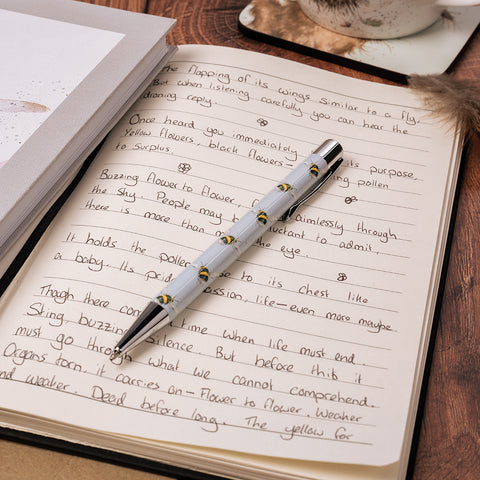 The flapping of its wings similar to a fly,
But when listening carefully you can hear the
droning reply.
Once heard you immediately its purpose,
Yellow flowers, black flowers - pollen
to Surplus.
Buzzing flower to flower, through
the Sky. People may b aimlessly
there is more than m luctant to admit,
the eye.
It holds the pollen e to its chest like
a baby. Its prid assion, life - even more maybe
Though there com time when life must end.
Sting, buzzing Silence. But before this it
must go through what we cannot comprehend.
Organs torn, it carries on - Flower to flower. Weaker
and weaker. Dead before long. The yellow for